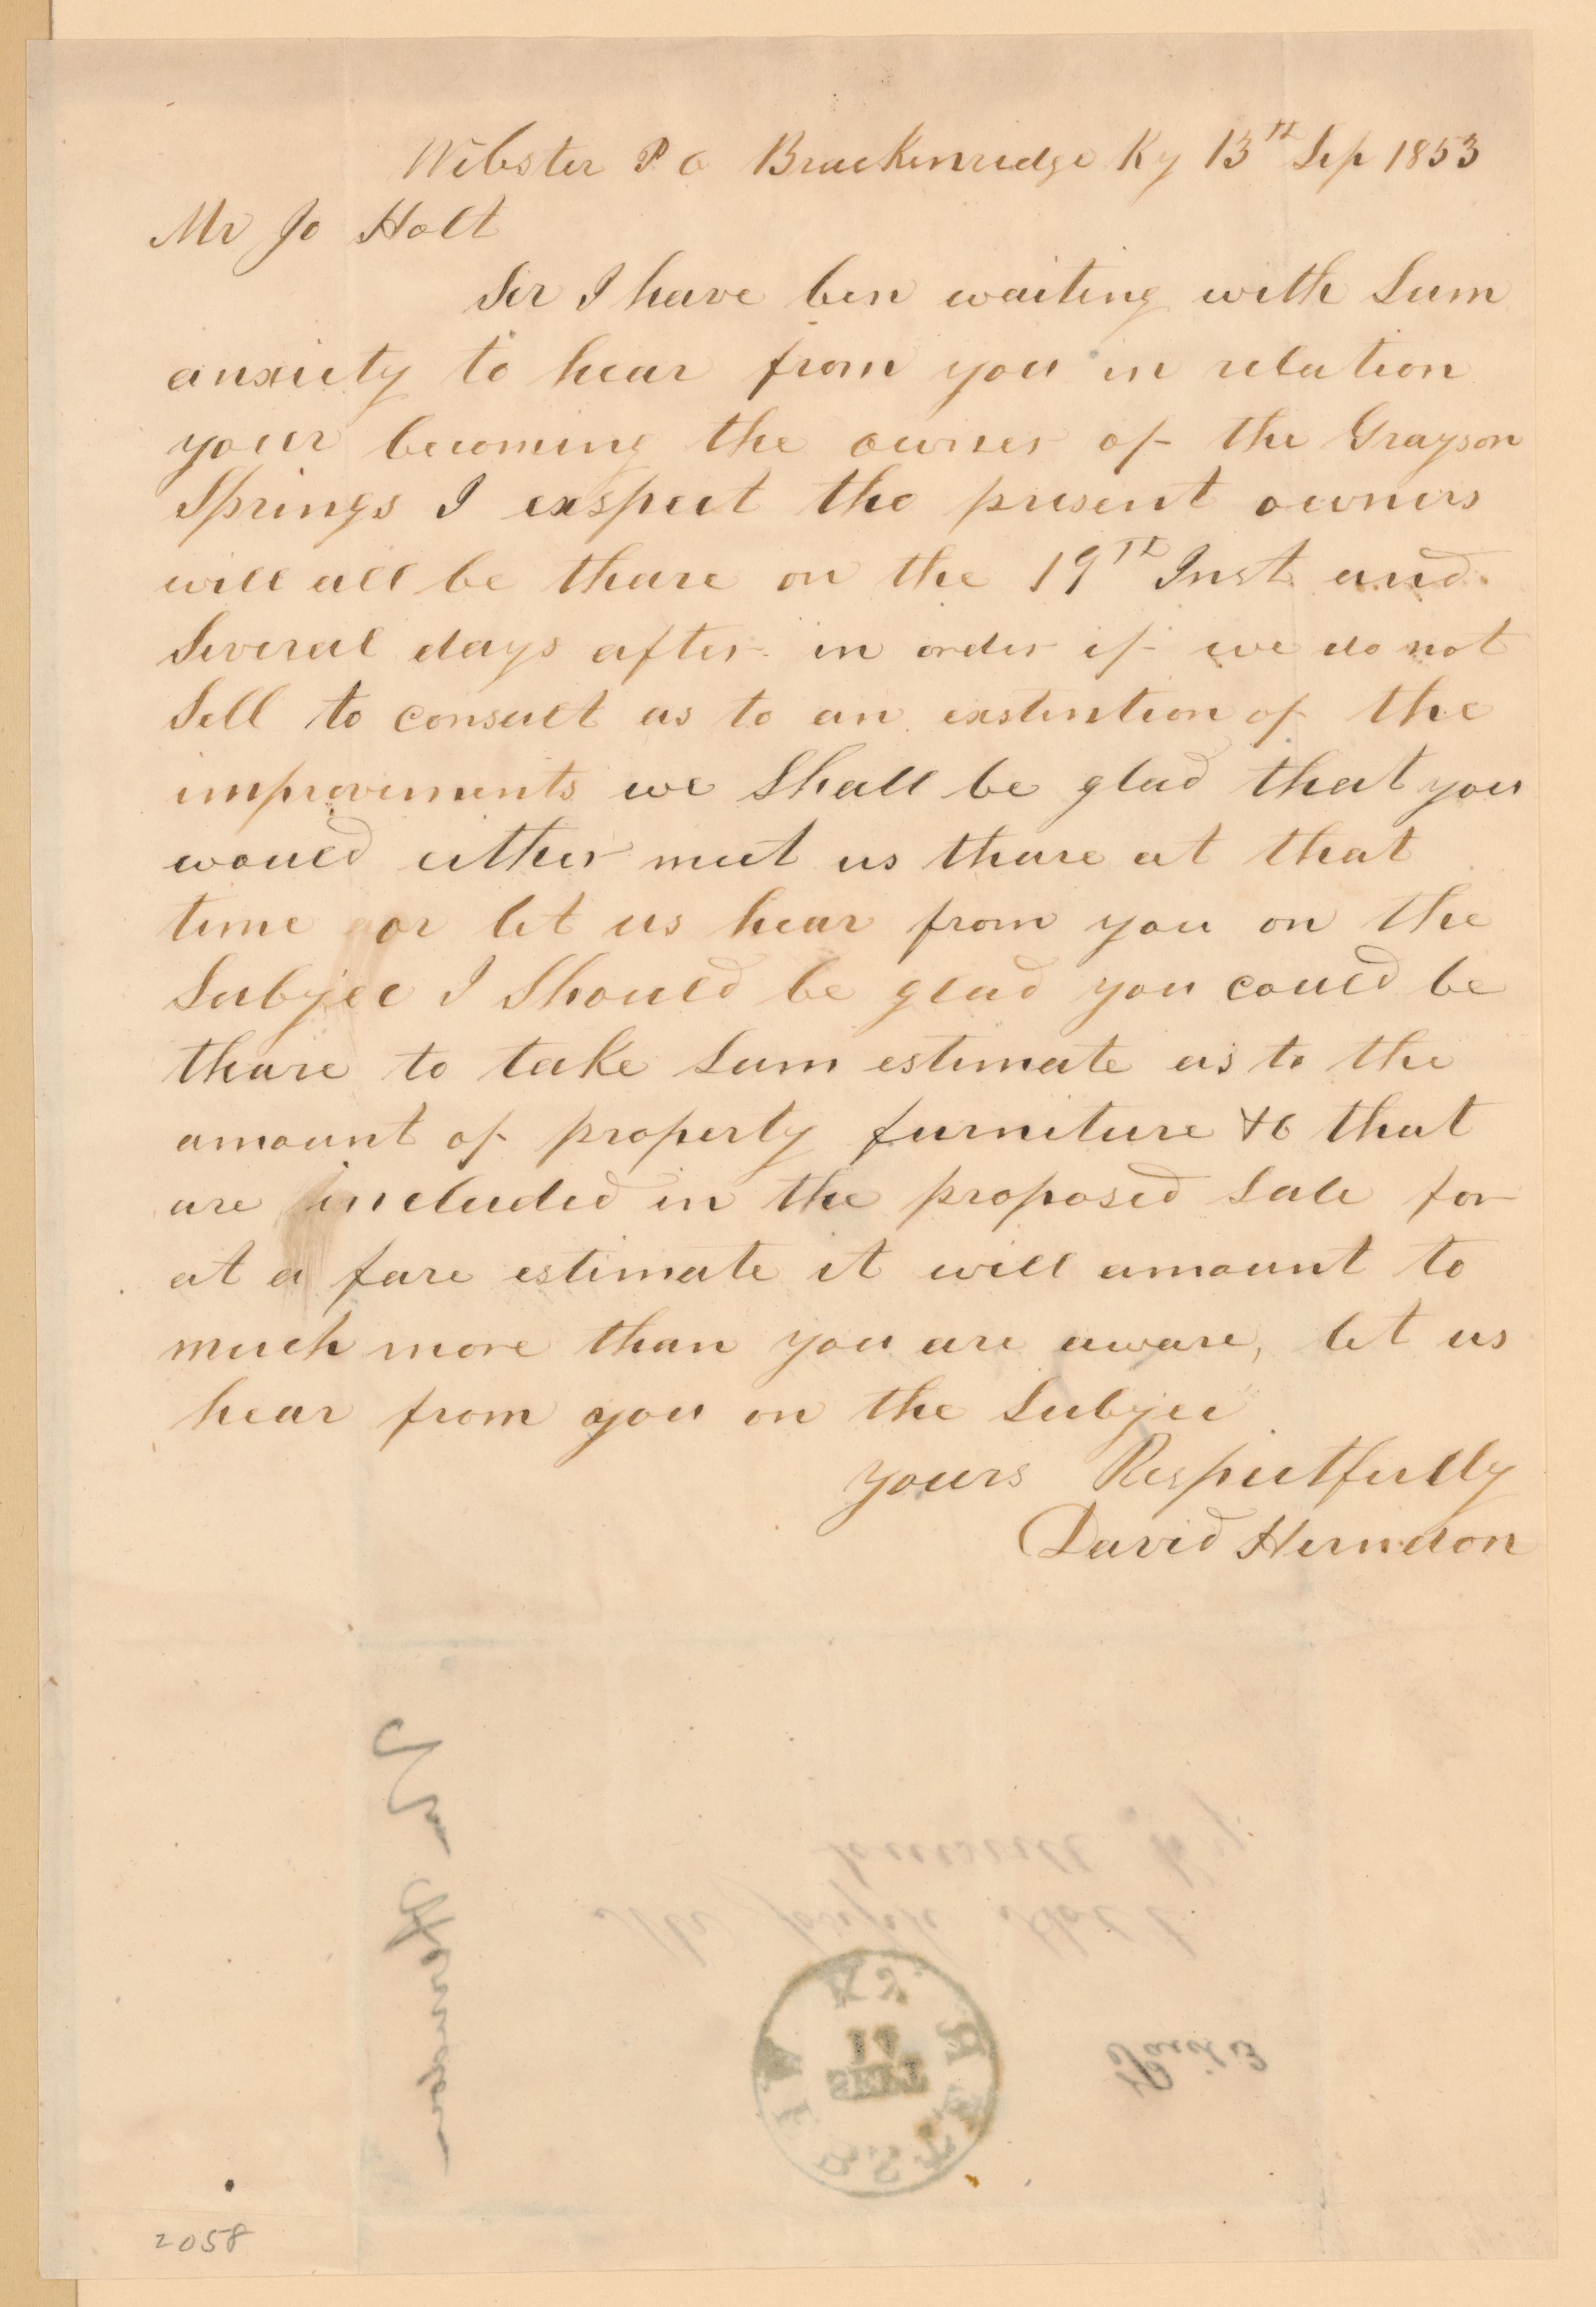 Webster P O Brackenridge Ky 13th Sep 1853
Mr Jo Holt
Sir I have ben waiting with Sum
anxiety to hear from you in relation
your becoming the owner of the Grayson
Springs I exspect the present owners
will all be thare on the 19th Inst and
Several days after in order if we do not
Sell to consult as to an exstention of the
improvements we Shall be glad that you
would either meet us thare at that
time or let us hear from you on the
Subjec I Should be glad you could be
thare to take Sum estimate as to the
amount of property furniture &c that
are included in the proposed Sale for
at a fare estimate it will amount to
much more than you are aware, let us
hear from you on the Subjec
yours Respectfully
David Herndon
Herndon
Mr Joseph Holt
Ky
WEBSTER KY.
14
SEPT
Paid 3
2058